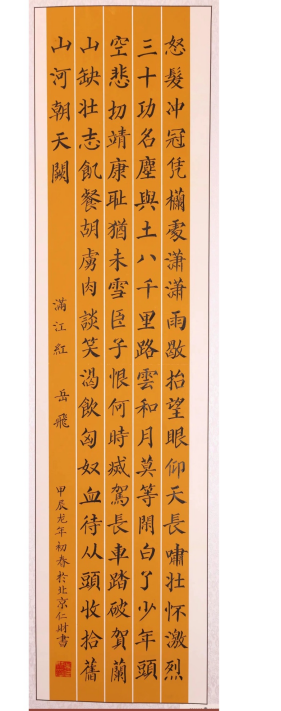 怒髮沖冠凭欄處瀟瀟雨歇抬望眼仰天長嘯壯怀激烈
三十功名塵與土八千里路雲和月莫等閒白了少年頭
空悲切靖康耻猶未雪臣子恨何時烕駕長車踏破賀蘭
山缺壮志飢餐胡虜肉談笑渴飲匈奴血待从頭收拾舊
山河朝天闕
滿江紅 岳飛
甲辰龙年初春於北京仁財書